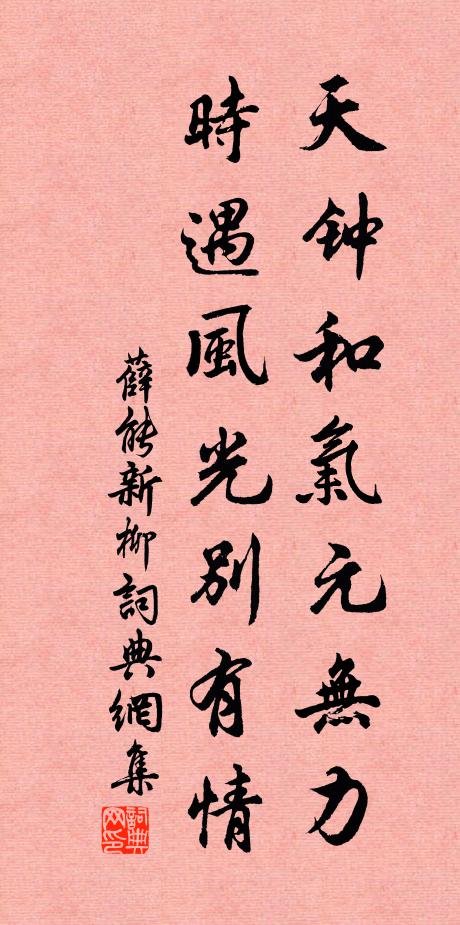 天钟和氣元無力
時遇風光別有情
薛能新柳詞典網集
詞典网印